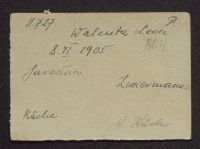 11.727
Walenta Leon P.
8. VI 1905
Jarosław Zuckermann.
Küche H Küche